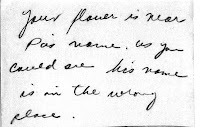 Your flower is near
Pa's name. as you
could see his name
is in the wrong
place.